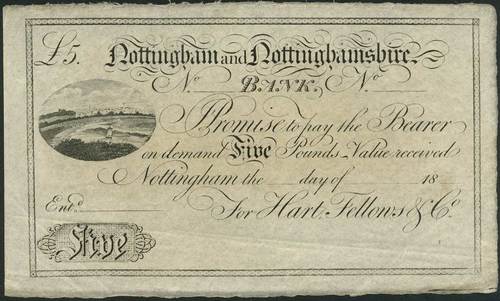 £5. Nottingham and Nottinghamshire.
No BANK. No
I Promise to pay the Bearer
on demand Five Pounds Value received
Nottingham the day of 18
Entd. For Hart, Fellows & Co.
Five